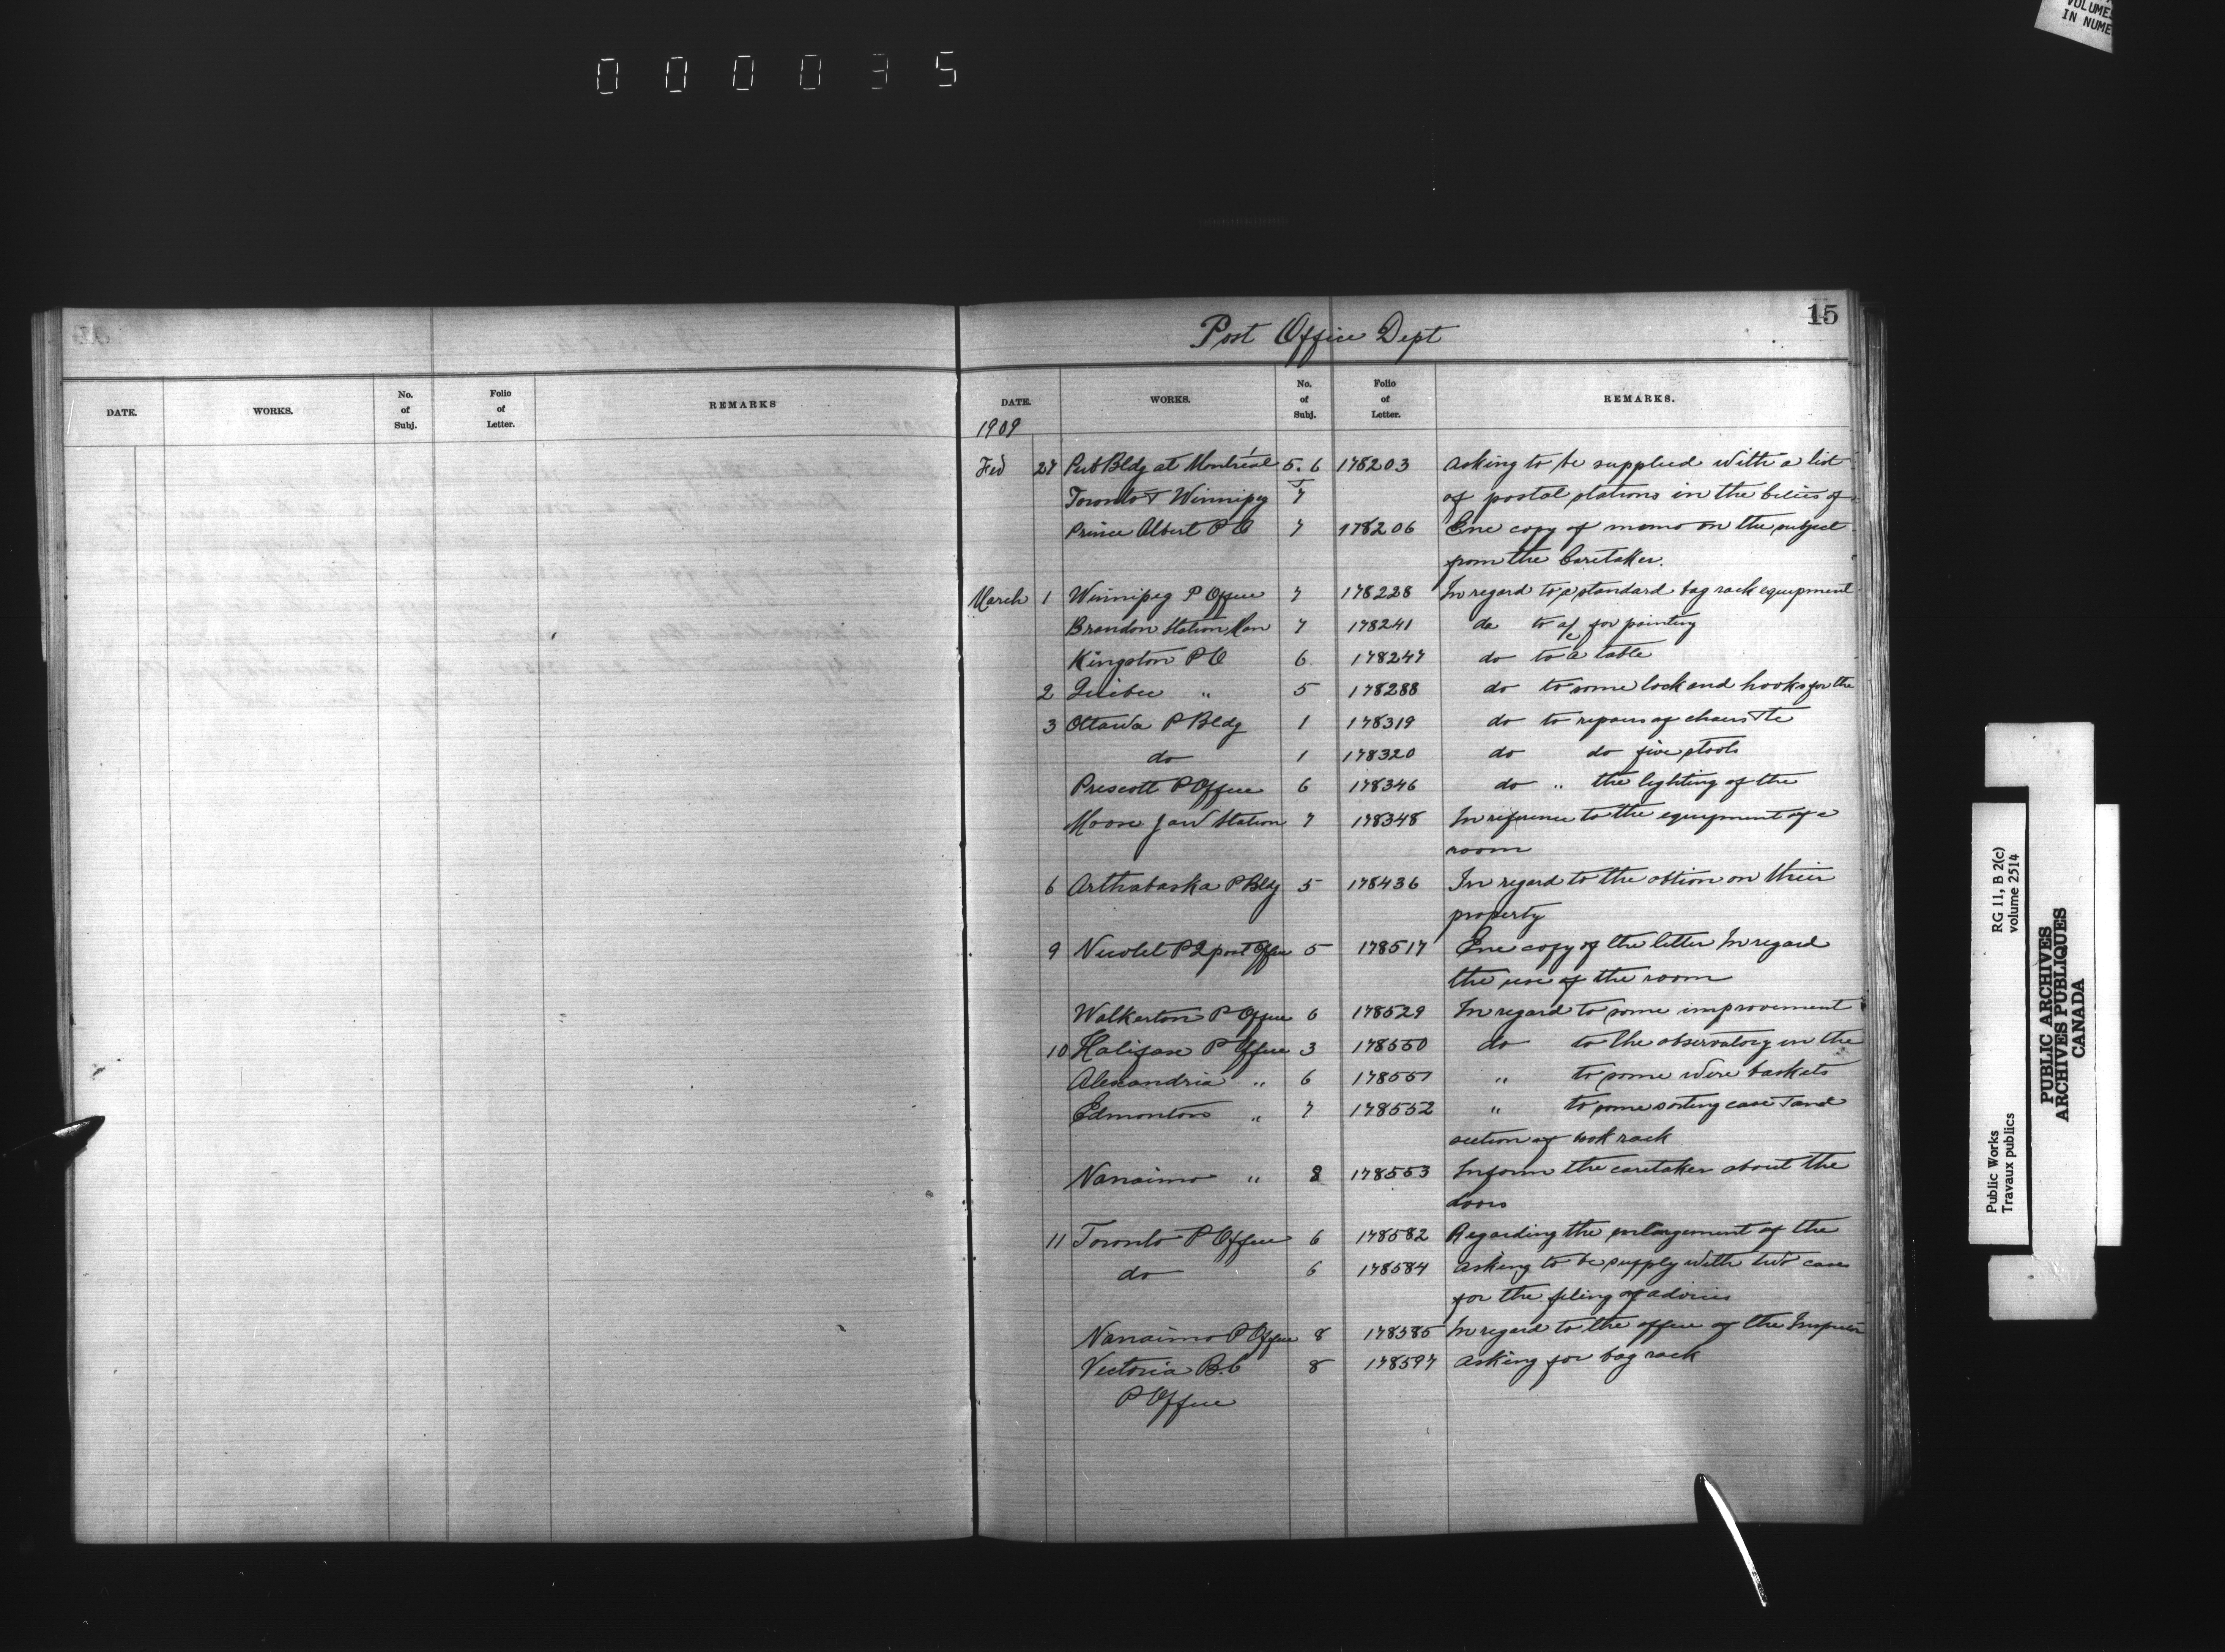 000035
VOLUME
IN NUME
15
Post Office Dept
DATE. WORKS. No. of Subj. Folio of Letter. REMARKS
DATE. WORKS. No. of Subj. Folio of Letter. REMARKS.
1909
Feb 27 Pub Bldg at Montréal 5. 6 178203 asking to be supplied with a list
Toronto & Winnipeg 7 of postal stations in the Cities of
Prince Albert P O 7 178206 Enc copy of memo on the subject
from the Caretaker.
March 1 Winnipeg P Office 7 178228 In regard to a standard bag rack equipment
Brandon Station Man 7 178241 do to a/c for painting
Kingston P O 6 178247 do to a table
2 Quebec " 5 178288 do to some lock and hooks for the
3 Ottawa P Bldg 1 178319 do to repairs of chairs &c
do 1 178320 do do five stools
Prescott P Office 6 178346 do " the lighting of the
Moose Jaw Station 7 178348 In reference to the equipment of a
room
6 Arthabaska P Bldg 5 178436 In regard to the obtion on their
property
9 Nicolet P Q post Office 5 178517 Enc copy of the letter In regard
the use of the room
Walkerton P Office 6 178529 In regard to some improvement
10 Halifax P Office 3 178550 do to the observatory in the
Alexandria " 6 178551 " to some wire baskets
Edmonton " 7 178552 " to some sorting case and
section of book rack
Nanaimo " 8 178553 Inform the caretaker about the
doors
11 Toronto P Office 6 178582 Regarding the enlargement of the
do 6 178584 asking to be supply with two case
for the filing of advices
Nanaimo P Office 8 178585 In regard to the office of the
Victoria B.C 8 178597 asking for bag rack
P Office
Public Works RG 11, B 2(c)
Travaux publics volume 2514
PUBLIC ARCHIVES
ARCHIVES PUBLIQUES
CANADA